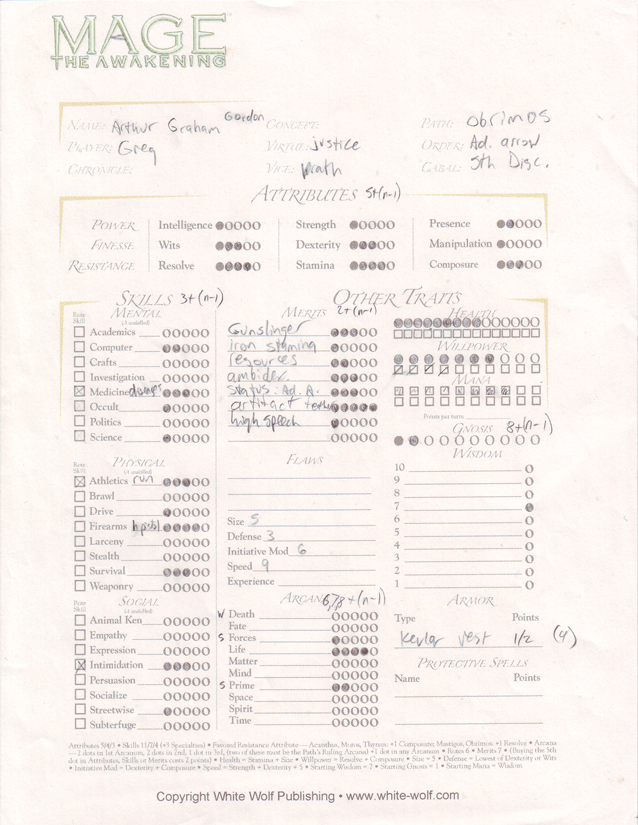 MAGE
THE AWAKENING
NAME: Arthur Graham Gordon CONCEPT: PATH: Obrimos
PLAYER: Greg VIRTUE: justice ORDER: Ad. arrow
CHRONICLE: VICE: Wrath CABAL: 5th Disc.
ATTRIBUTES 5+(n-1)
POWER Intelligence Strength Presence
FINESSE Wits Dexterity Manipulation
RESISTANCE Resolve Stamina Composure
SKILLS 3+(n-1)
OTHER TRAITS
Rote Skill MENTAL
(-3 unskilled)
Academics
Computer
Crafts
Investigation
Medicine
Occult
Politics
Science
Rote Skill PHYSICAL
(-1 unskilled)
Athletics run
Brawl
Drive
Firearms
Larceny
Stealth
Survival
Weaponry
Rote Skill SOCIAL
(-1 unskilled)
Animal Ken
Empathy
Expression
Intimidation
Persuasion
Socialize
Streetwise
Subterfuge
MERITS 2+(n-1)
Gunslinger
iron stamina
resources
ambidex.
status: Ad. A.
artifact
high speech
FLAWS
Size 5
Defense 3
Initiative Mod 6
Speed 9
Experience
ARCANA 6,7,8+(n-1)
Death
Fate
S Forces
Life
Matter
Mind
S Prime
Space
Spirit
Time
HEALTH
WILLPOWER
MANA
Points per turn
GNOSIS 8+(n-1)
WISDOM
10
9
8
7
6
5
4
3
2
1
ARMOR
Type Points
Kevlar vest 1/2 (4)
PROTECTIVE SPELLS
Name Points
Attributes 5/4/3 • Skills 11/7/4 (+3 Specialties) • Favored Resistance Attribute — Acanthus, Moros, Thyrsus: +1 Composure; Mastigos, Obrimos: +1 Resolve • Arcana
—2 dots in 1st Arcanum, 2 dots in 2nd, 1 dot in 3rd, (two of these must be the Path's Ruling Arcana) +1 dot in any Arcanum • Rotes 6 • Merits 7 • (Buying the 5th
dot in Attributes, Skills or Merits costs 2 points) • Health = Stamina + Size • Willpower = Resolve + Composure • Size = 5 • Defense = Lowest of Dexterity or Wits
• Initiative Mod = Dexterity + Composure • Speed = Strength + Dexterity + 5 • Starting Wisdom = 7 • Starting Gnosis = 1 • Starting Mana = Wisdom
Copyright White Wolf Publishing • www.white-wolf.com